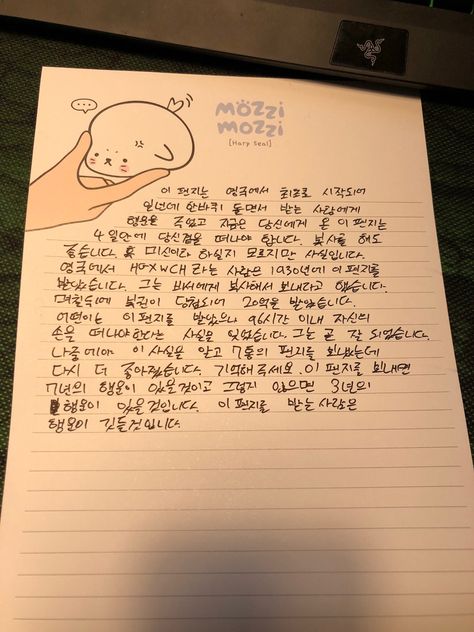 mözzi
mozzi
[Harp Seal]
이 편지는 영국에서 최초로 시작되어
일년에 한바퀴 돌면서 받는 사람에게
행운을 주었고 지금은 당신에게 온 이 편지는
4일안에 당신곁을 떠나야 합니다. 복사를 해도
좋습니다. 혹 미신이라 하실지 모르지만 사실입니다.
영국에서 HGXWCH 라는 사람은 1930년에 이 편지를
받았습니다. 그는 비서에게 복사해서 보내라고 했습니다.
며칠뒤에 복권이 당첨되어 20억을 받았습니다.
어떤이는 이 편지를 받았으나 96시간 이내 자신의
손을 떠나야한다는 사실을 잊었습니다. 그는 곧
나중에야 이 사실을 알고 7통의 편지를 보냈는데
다시 더 좋아졌습니다. 기억해주세요. 이 편지를 보내면
7년의 행운이 있을것이고 그렇지 않으면 3년의
행운이 있을것입니다. 이 편지를 받는 사람은
행운이 깃들것입니다.